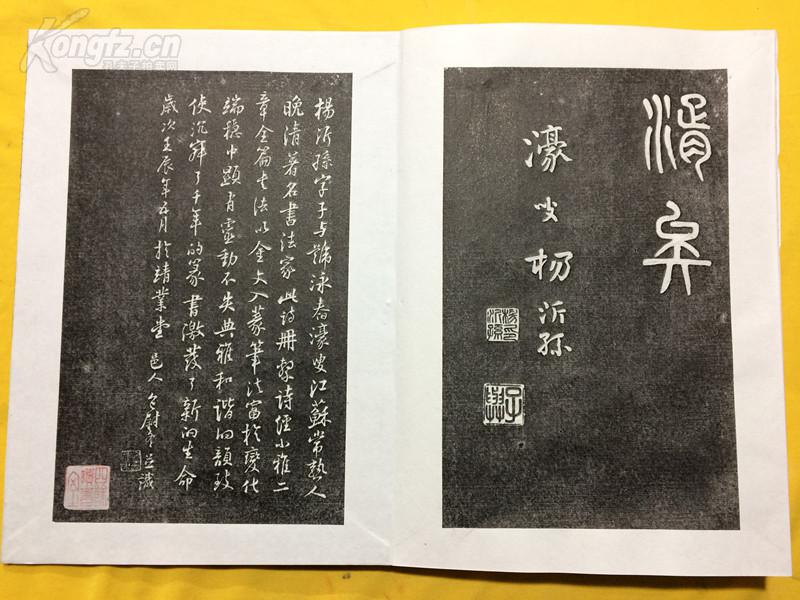 Kongfz.cn
孔夫子拍卖网
湑矣
濠叟楊沂孫
楊沂孫印
子與
楊沂孫字子与號泳春濠叟江蘇常熟人
晚清著名書法家此詩冊繫詩經小雅二
章全篇書法以金文入篆筆法富於變化
端穩中顯有靈動不失典雅和諧的韻致
使沉寂了千年的篆書激發了新的生命
歲次壬辰年五月於靖業堂邑人並識